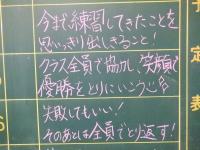 今まで練習してきたことを
思いっきり出しきること!
クラス全員で協力し、笑顔で
優勝をとりにいこう
失敗してもいい!
そのあとは全員でとり返す!
予
定
表